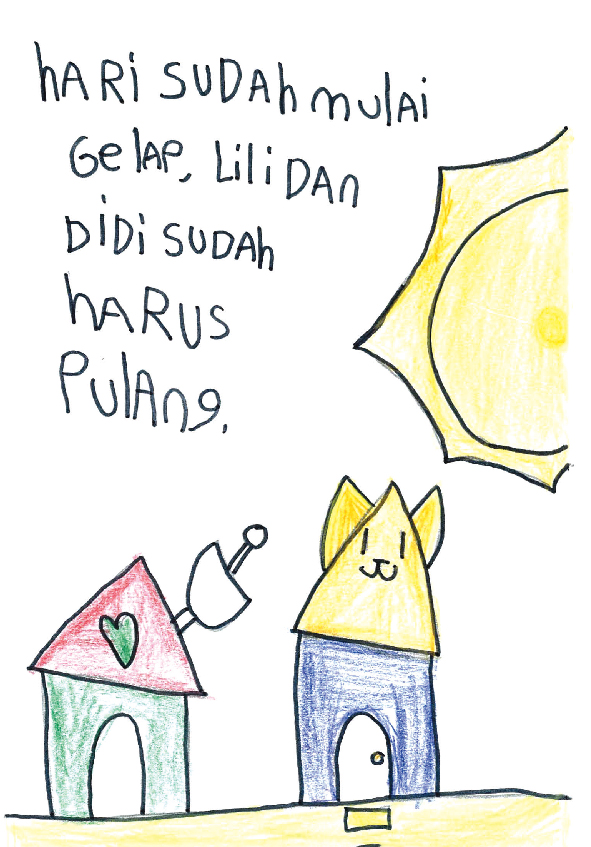 hARi SUDAh mulAi
GelAP, LiliDAn
DiDi SUDAh
hARUS
PulAng.